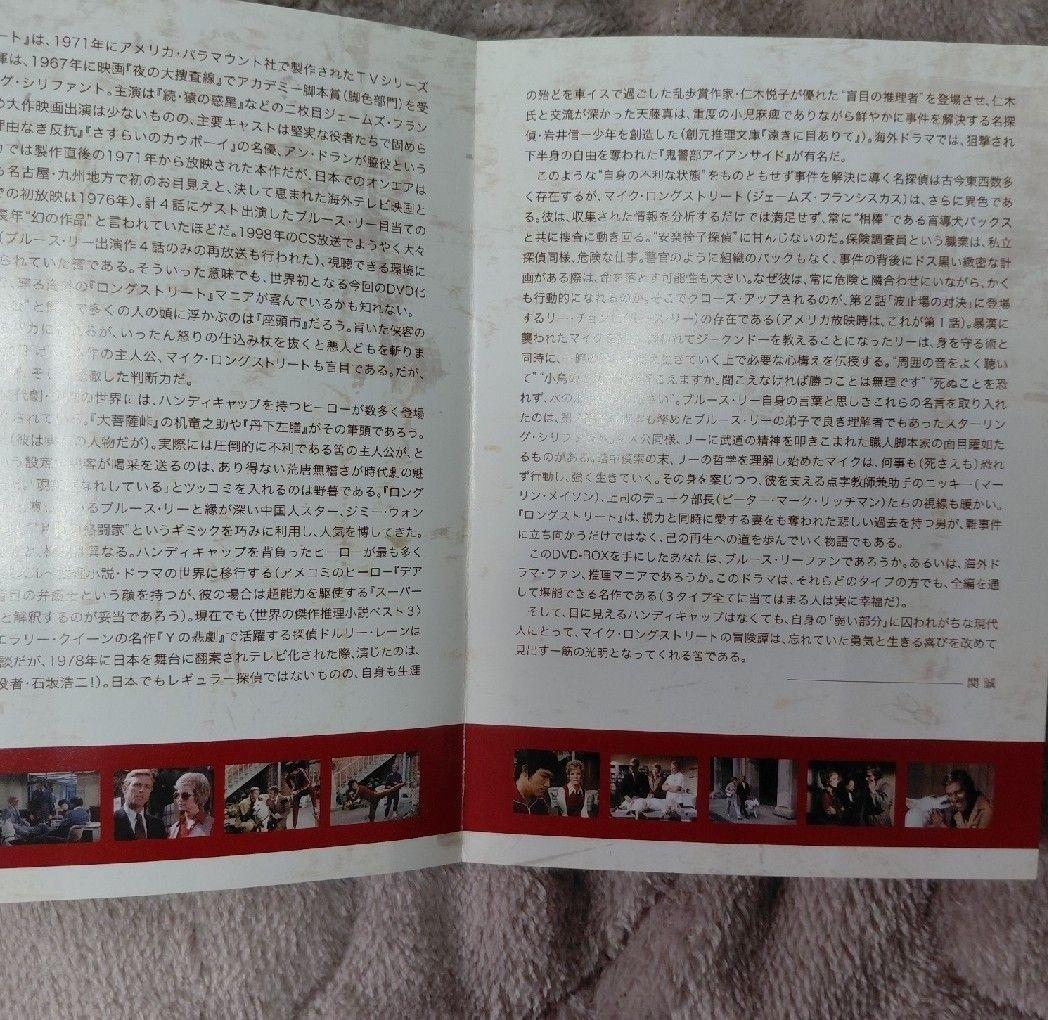 ート』は、1971年にアメリカ・パラマウント社で製作されたTVシリーズ
は、1967年に映画『夜の大捜査線』でアカデミー脚本賞(脚色部門)を受
グ・シリファント。主演は『続・猿の惑星』などの二枚目ジェームズ・フラン
大作映画出演は少ないものの、主要キャストは堅実な役者たちで固めら
由なき反抗』『さすらいのカウボーイ』の名優、アン・ドランが脇役という
では製作直後の1971年から放映された本作だが、日本でのオンエアは
名古屋・九州地方で初のお目見えと、決して恵まれた海外テレビ映画と
の初放映は1976年)。計4話にゲスト出演したブルース・リー目当ての
長年“幻の作品”と言われていたほどだ。1998年のCS放送でようやく大々
(ブルース・リー出演作4話のみの再放送も行われた)、視聴できる環境に
られていた筈である。そういった意味でも、世界初となる今回のDVD化
の『ロングストリート』マニアが喜んでいるかも知れない。
多くの人の頭に浮かぶのは『座頭市』だろう。盲いた侠客の
が、いったん怒りの仕込み杖を抜くと悪人どもを斬りま
の主人公、マイク・ロングストリートも盲目である。だが、
した判断力だ。
の世界には、ハンディキャップを持つヒーローが数多く登場
されている。『大菩薩峠』の机竜之助や『丹下左膳』がその筆頭であろう。
(彼は の人物だが)。実際には圧倒的に不利である筈の主人公が、と
いう設定に 客が喝采を送るのは、あり得ない荒唐無稽さが時代劇の魅
れしている」とツッコミを入れるのは野暮である。『ロング
いるブルース・リーと縁が深い中国人スター、ジミー・ウォン
格闘家”というギミックを巧みに利用し、人気を博してきた。
異なる。ハンディキャップを背負ったヒーローが最も多く
小説・ドラマの世界に移行する(アメコミのヒーロー『デア
盲目の弁護士という顔を持つが、彼の場合は超能力を駆使する『スーパー
と解釈するのが妥当であろう)。現在でも(世界の傑作推理小説ベスト3)
エラリー・クイーンの名作『Yの悲劇』で活躍する探偵ドルリー・レーンは
談だが、1978年に日本を舞台に翻案されテレビ化された際、演じたのは、
役者・石坂浩二!)。日本でもレギュラー探偵ではないものの、自身も生涯
の殆どを車イスで過ごした乱歩賞作家・仁木悦子が優れた“盲目の推理者”を登場させ、仁木
氏と交流が深かった天藤真は、重度の小児麻痺でありながら鮮やかに事件を解決する名探
偵・岩井信一少年を創造した(創元推理文庫『遠きに目ありて』)。海外ドラマでは、狙撃され
下半身の自由を奪われた『鬼警部アイアンサイド』が有名だ。
このような“自身の不利な状態”をものともせず事件を解決に導く名探偵は古今東西数多
く存在するが、マイク・ロングストリート(ジェームズ・フランシスカス)は、さらに異色であ
る。彼は、収集された情報を分析するだけでは満足せず、常に“相棒”である盲導犬パックス
と共に捜査に動き回る。“安楽椅子探偵”に甘んじないのだ。保険調査員という職業は、私立
探偵同様、危険な仕事。警官のように組織のバックもなく、事件の背後にドス黒い緻密な計
画がある際は、命を落とす可能性も大きい。なぜ彼は、常に危険と隣合わせにいながら、かく
も行動的になれるのか。そこでクローズ・アップされるのが、第2話「波止場の対決」に登場
するリー・チョン(ブルース・リー)の存在である(アメリカ放映時は、これが第1話)。暴漢に
襲われたマイクを れてジークンドーを教えることになったリーは、身を守る術と
同時に、 生きていく上で必要な心構えを伝授する。“周囲の音をよく聴い
て”“小鳥の こえますか。聞こえなければ勝つことは無理です”“死ぬことを恐
れず、水の さい”。ブルース・リー自身の言葉と思しきこれらの名言を取り入れ
たのは、 も務めたブルース・リーの弟子で良き理解者でもあったスターリン
グ・シリファント。 公同様、リーに武道の精神を叩きこまれた職人脚本家の面目躍如た
るものがある。暗中模索の末、リーの哲学を理解し始めたマイクは、何事も(死さえも)恐れ
ず行動し、強く生きていく。その身を案じつつ、彼を支える点字教師兼助手のニッキー(マー
リン・メイソン)、上司のデューク部長(ピーター・マーク・リッチマン)たちの視線も暖かい。
『ロングストリート』は、視力と同時に愛する妻をも奪われた悲しい過去を持つ男が、難事件
に立ち向かうだけではなく、己の再生への道を歩んでいく物語でもある。
このDVD-BOXを手にしたあなたは、ブルース・リーファンであろうか。あるいは、海外ド
ラマ・ファン、推理マニアであろうか。このドラマは、それらどのタイプの方でも、全編を通
して堪能できる名作である(3タイプ全てに当てはまる人は実に幸福だ)。
そして、目に見えるハンディキャップはなくても、自身の“弱い部分”に囚われがちな現代
人にとって、マイク・ロングストリートの冒険譚は、忘れていた勇気と生きる喜びを改めて
見出す一筋の光明となってくれる筈である。
関 誠